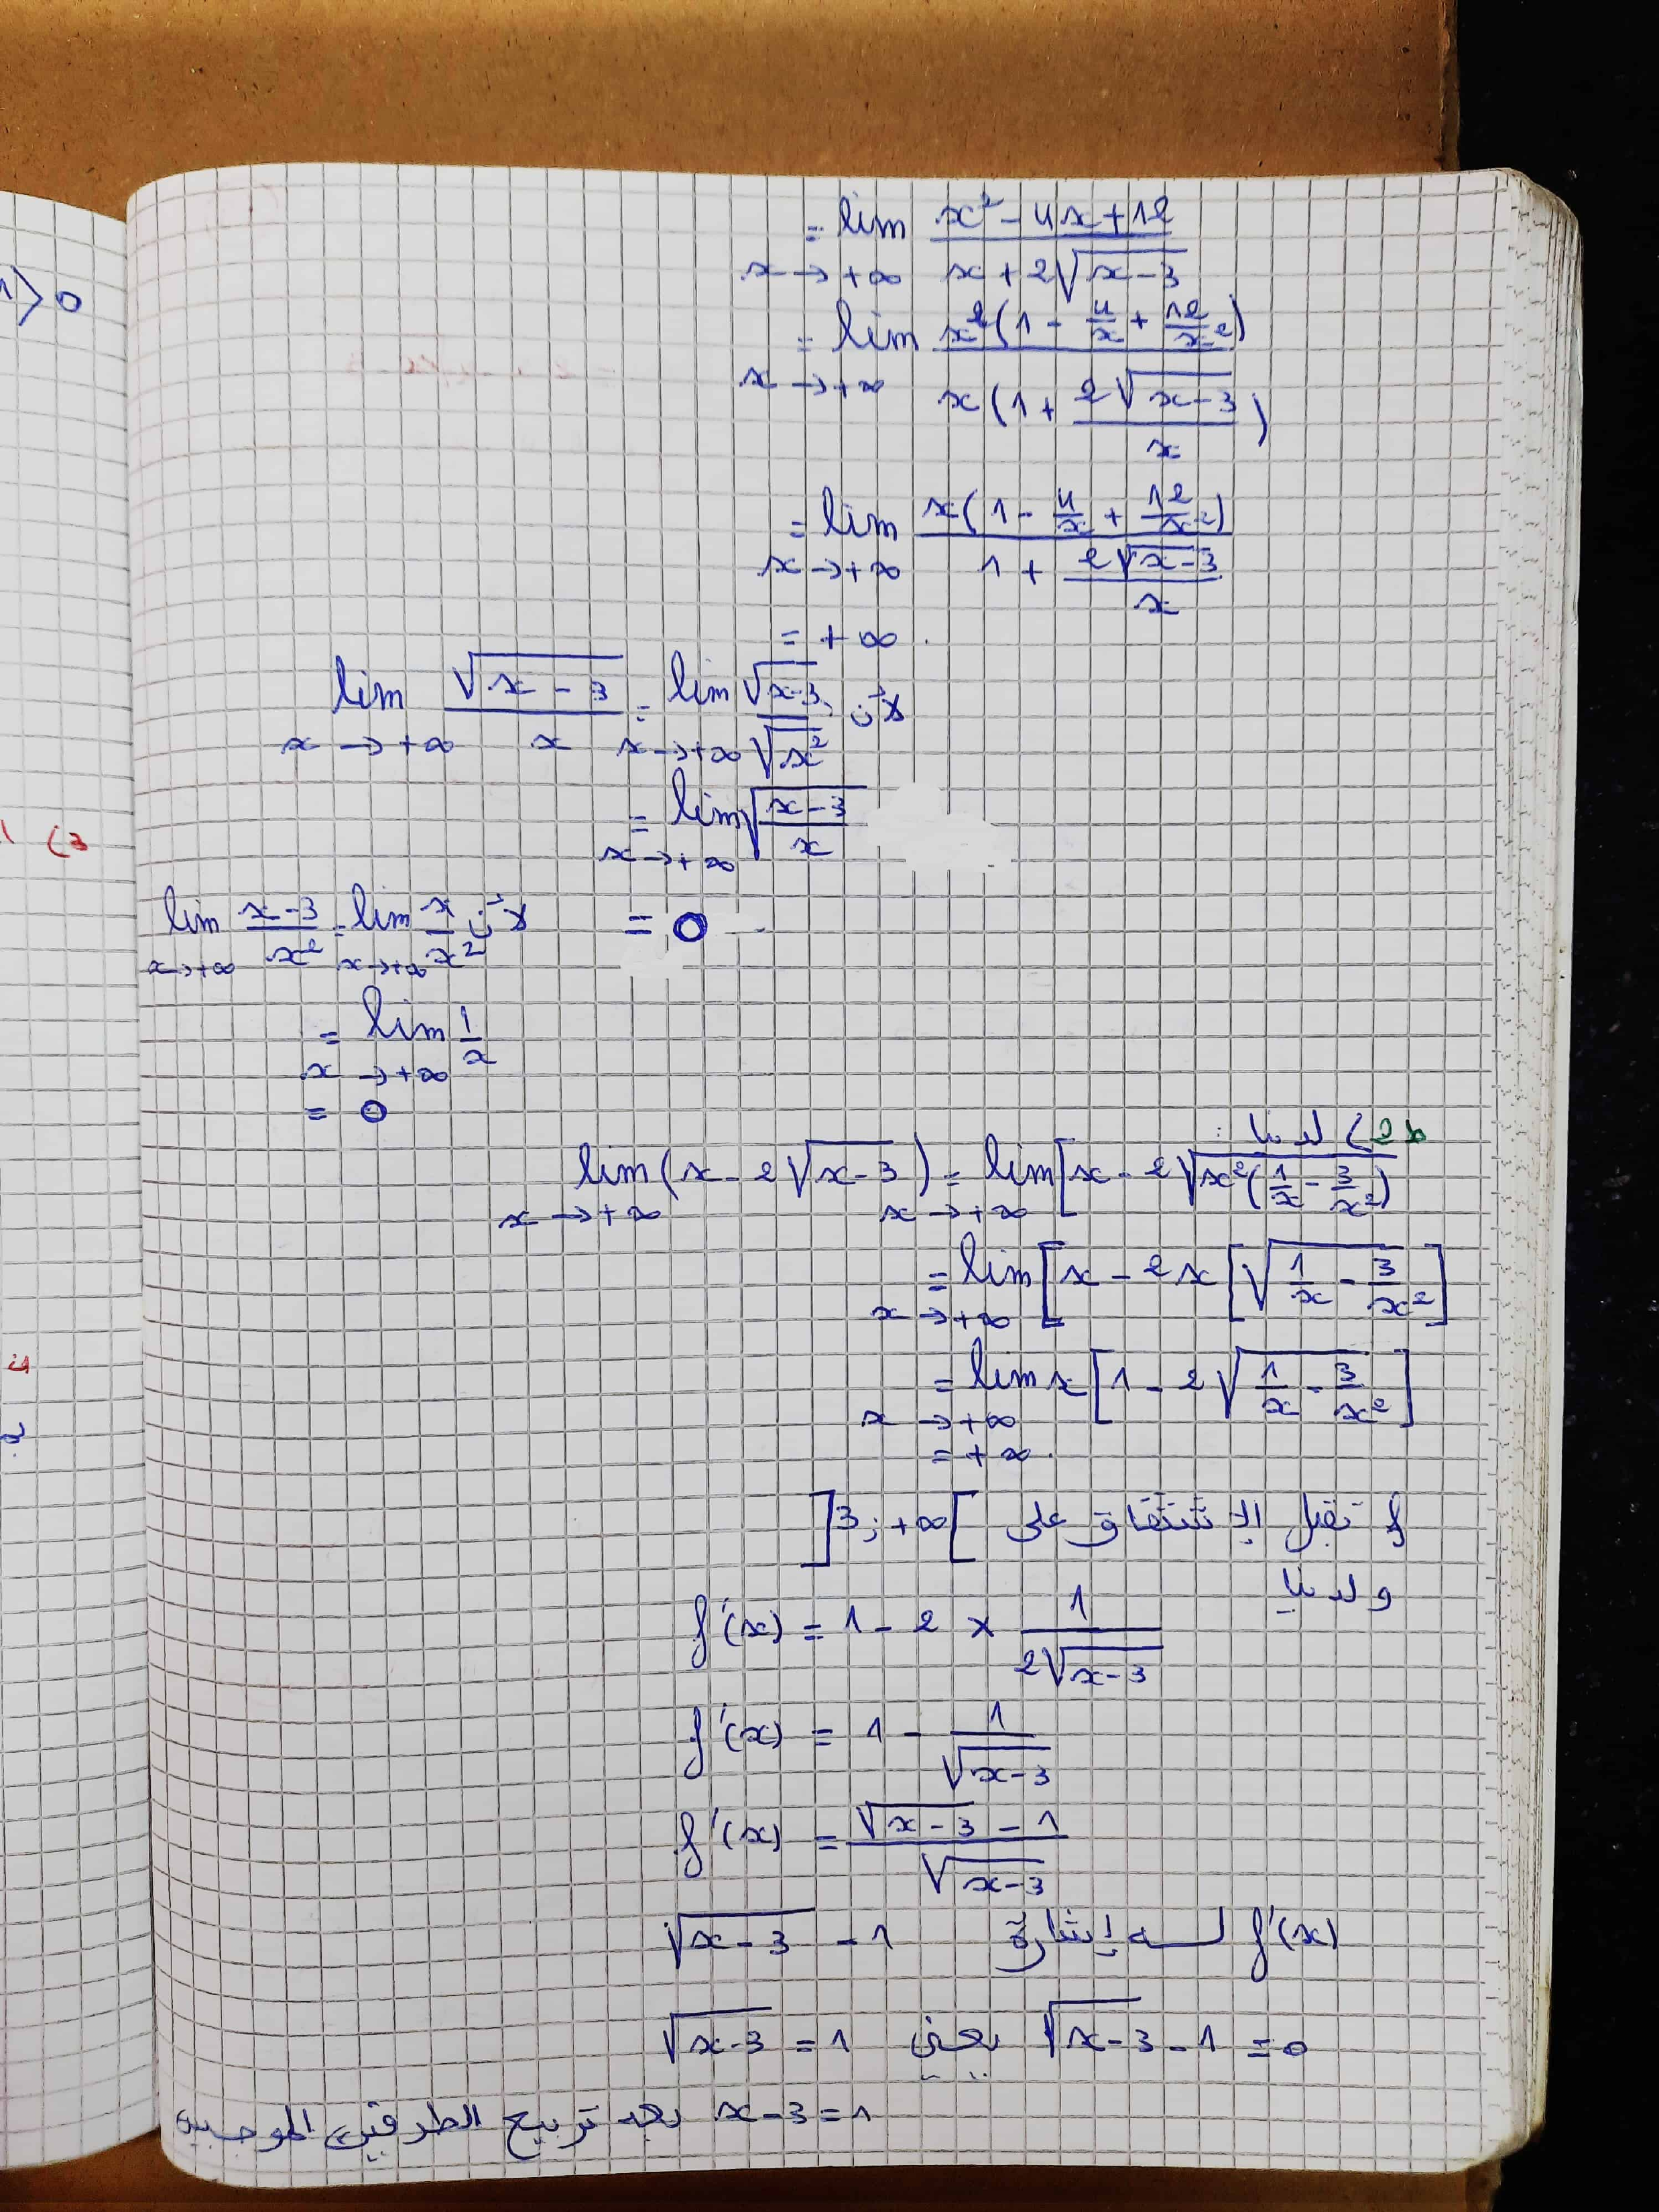 = lim x² - 4x + 12 / x + 2√(x-3)
x → +∞
= lim x²(1 - 4/x + 12/x²) / x(1 + 2√(x-3)/x)
x → +∞
= lim x(1 - 4/x + 12/x²) / 1 + 2√(x-3)/x
x → +∞
= +∞ .
لأن : lim √(x-3) / x = lim √(x-3) / √x²
x → +∞ x → +∞
= lim √(x-3 / x)
x → +∞
= 0
لأن lim x-3 / x² = lim x / x²
x → +∞ x → +∞
= lim 1/x
x → +∞
= 0
2b) لدينا :
lim (x - 2√(x-3)) = lim [x - 2√(x²(1/x - 3/x²))
x → +∞ x → +∞
= lim [x - 2x[√(1/x - 3/x²)]
x → +∞
= lim x[1 - 2√(1/x - 3/x²)]
x → +∞
= +∞ .
f تقبل الإشتقاق على ]3; +∞[
ولدينا
f'(x) = 1 - 2 × 1 / 2√(x-3)
f'(x) = 1 - 1 / √(x-3)
f'(x) = √(x-3) - 1 / √(x-3)
f'(x) لسه إشارة √(x-3) - 1
√(x-3) - 1 = 0 يعني √(x-3) = 1
x-3 = 1 بعد تربيع الطرفين الموجبين
1 > 0
3)